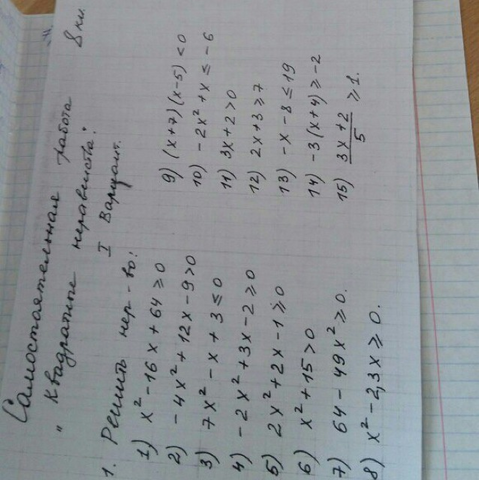 Самостоятельная работа 8 кл.
„ Квадратные неравенства"
I Вариант.
1. Решить нер-во:
1) x² - 16x + 64 ≥ 0
2) - 4x² + 12x - 9 > 0
3) 7x² - x + 3 ≤ 0
4) - 2x² + 3x - 2 ≥ 0
5) 2x² + 2x - 1 ≥ 0
6) x² + 15 > 0
7) 64 - 49x² ≥ 0.
8) x² - 2,3x ≥ 0.
9) (x+7)(x-5) < 0
10) - 2x² + x ≤ - 6
11) 3x + 2 > 0
12) 2x + 3 ≥ 7
13) - x - 8 ≤ 19
14) - 3(x+4) ≥ -2
15) (3x + 2)/5 ≥ 1.